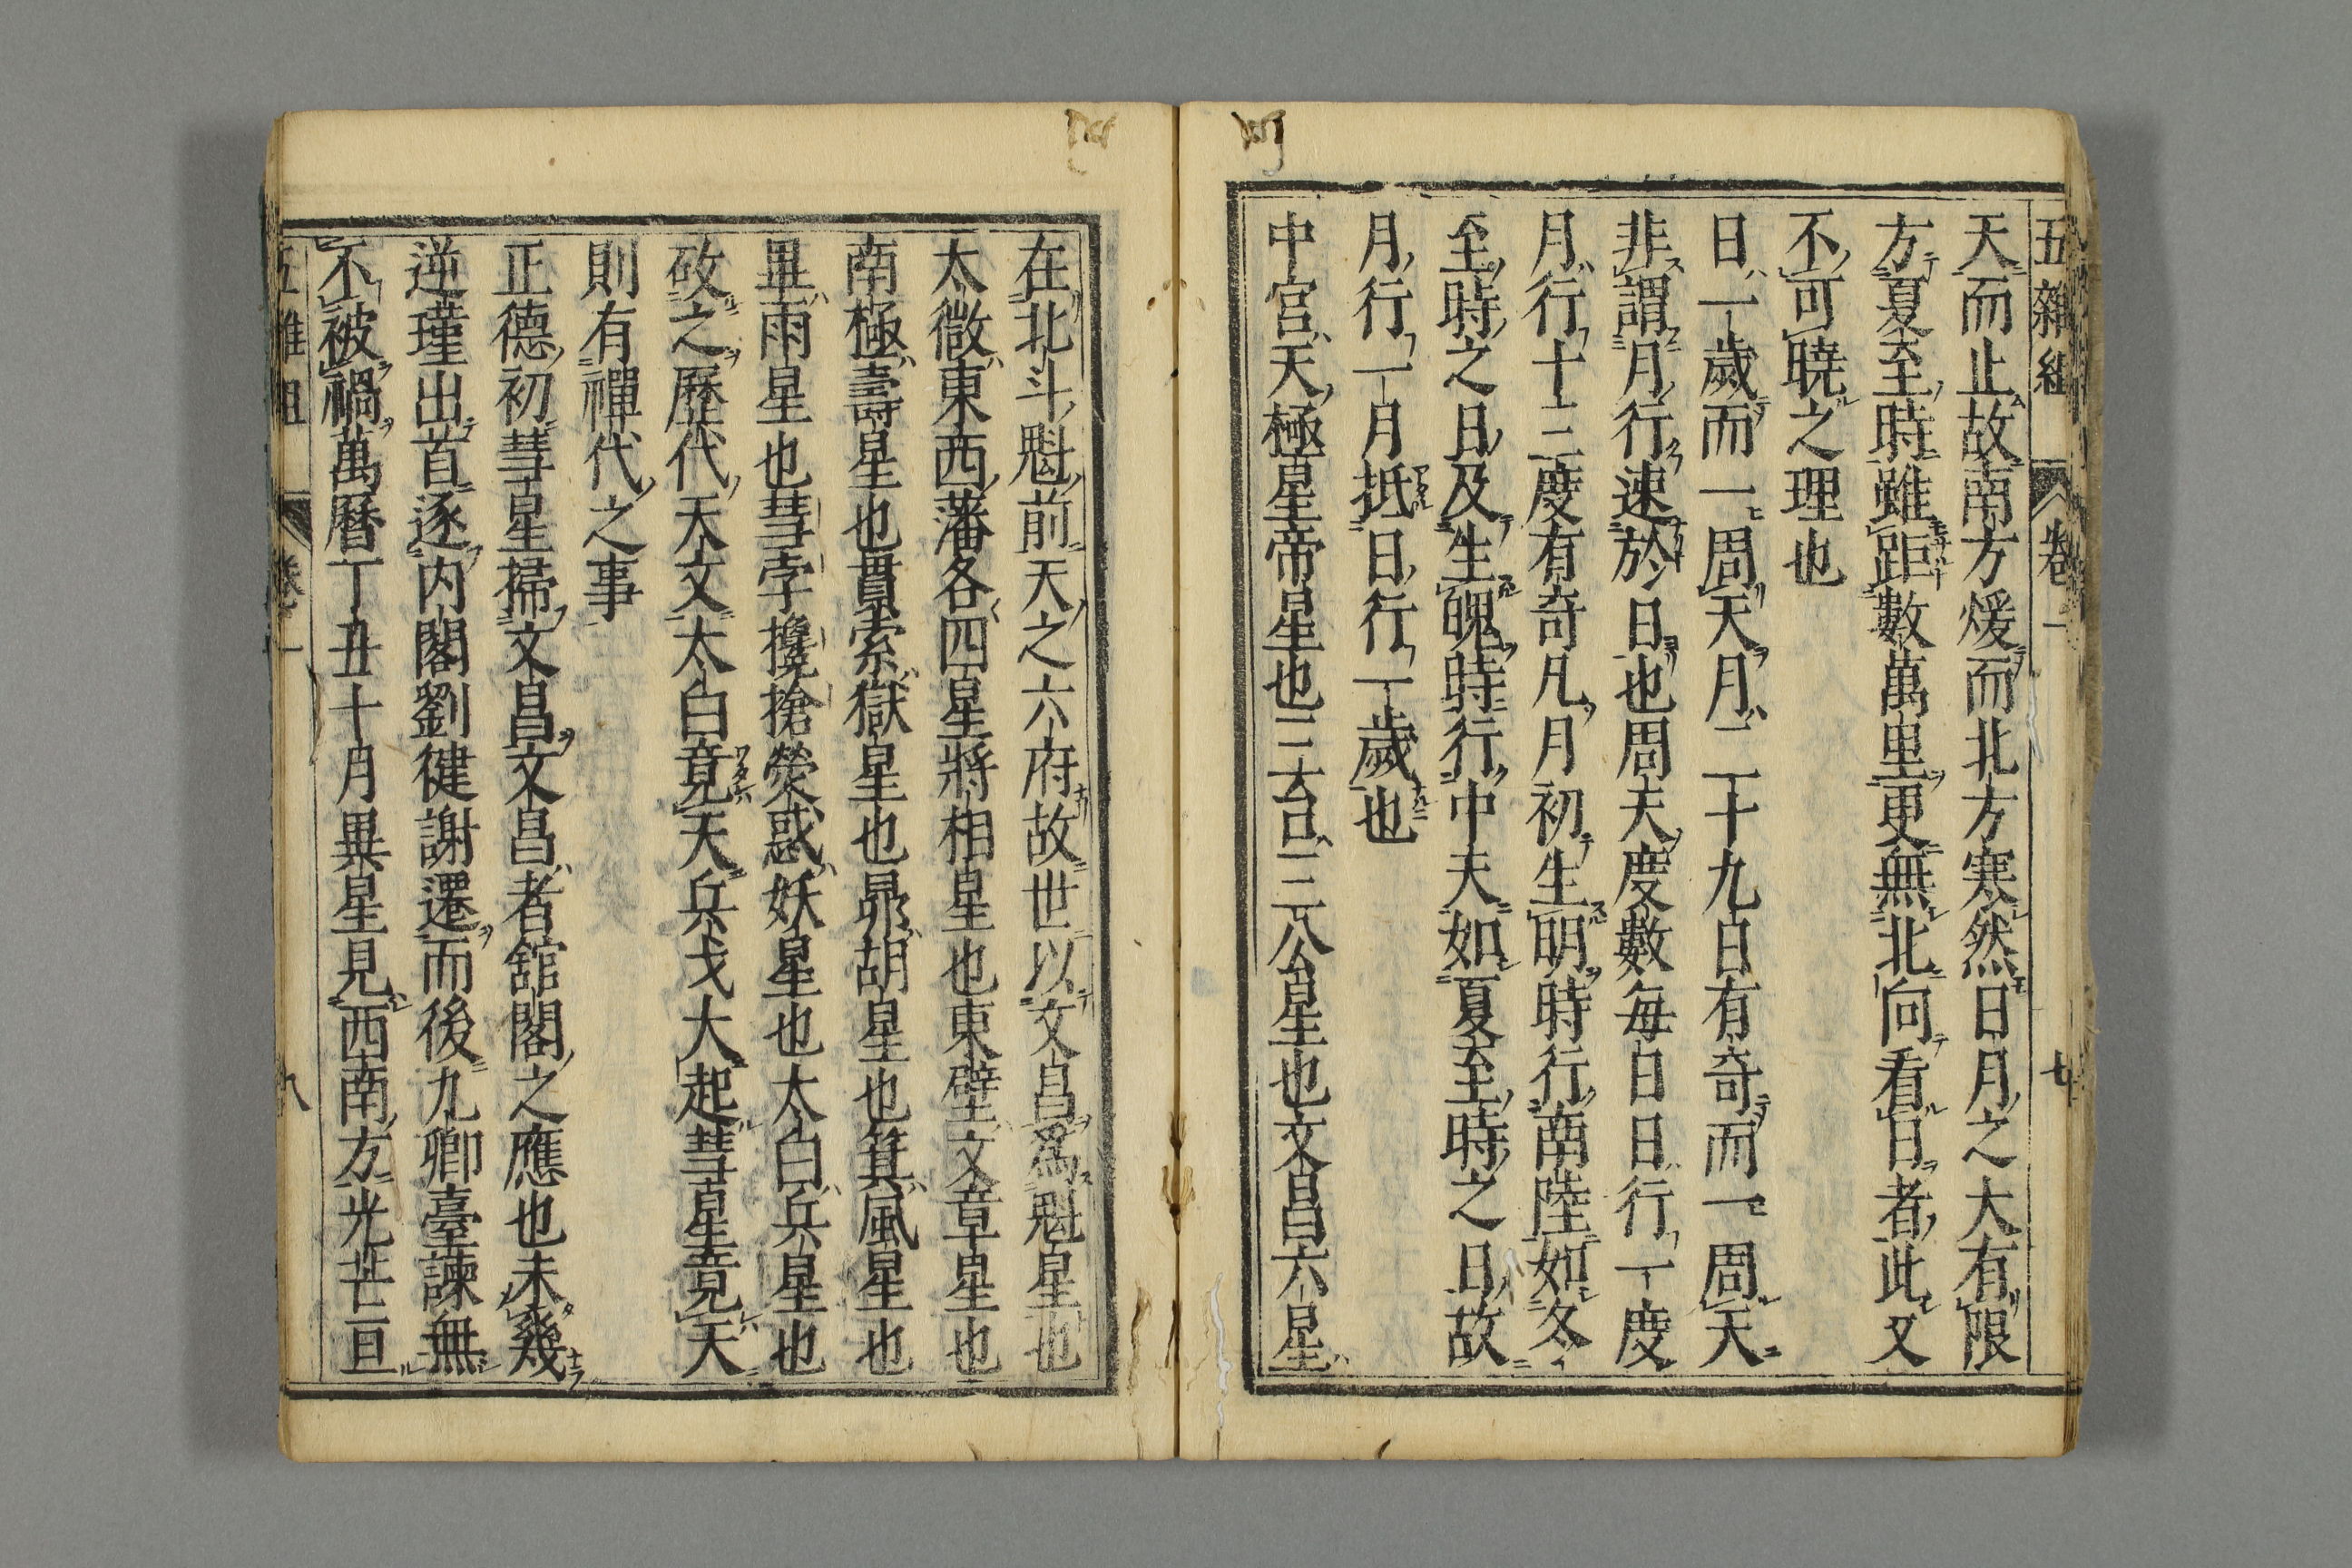 五雜組 卷一 七
天而止故南方煖而北方寒然日月之大有限
方夏至時雖距數萬里更無北向看日者此又
不可曉之理也
日一歲而一周天月二十九日有奇而一周天
非謂月行速於日也周天度數每日日行一度
月行十三度有奇凡月初生明時行南陸如冬
至時之日及生魄時行中天如夏至時之日故
月行一月抵日行一歲也
中宮天極星帝星也三台三公星也文昌六星
在北斗魁前天之六府故世以文昌為魁星也
太微東西藩各四星將相星也東壁文章星也
南極壽星也貫索獄星也昴胡星也箕風星也
畢雨星也彗孛攙搶熒惑妖星也太白兵星也
攷之歷代天文太白竟天兵戈大起彗星竟天
則有禪代之事
正德初彗星掃文昌文昌者舘閣之應也未幾
逆瑾出首逐内閣劉健謝遷而後九卿臺諫無
不被禍萬曆丁丑十月異星見西南方光芒亘
五雜組 卷一 八